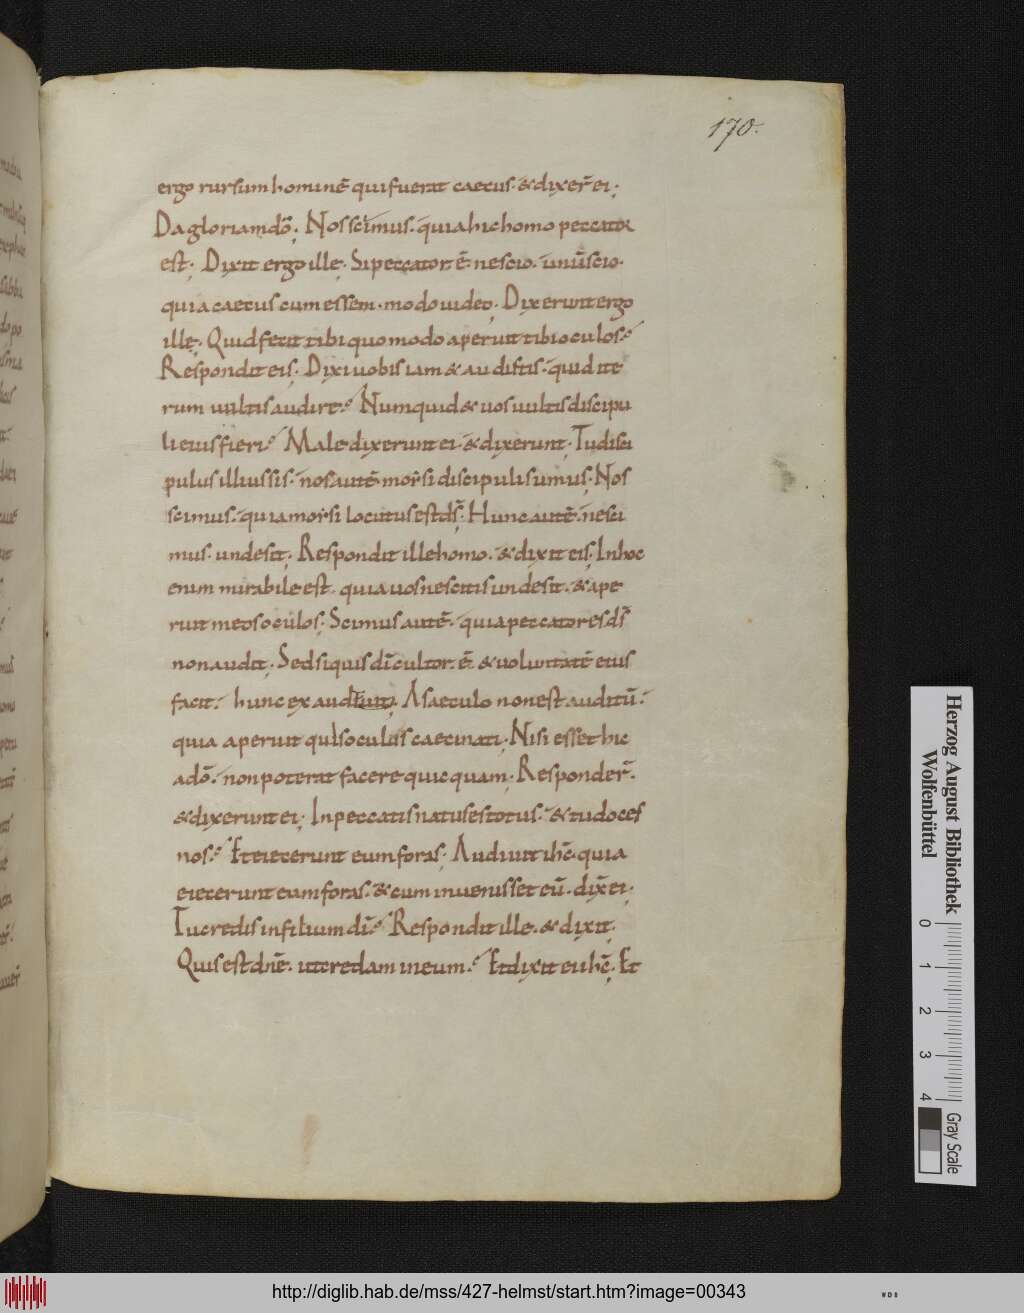 170.
ergo rursum hominē qui fuerat caecus. & dixer̄ ei;
Da gloriam dō; Nos scimus. quia hic homo peccator
est; Dixit ergo ille; Si peccator ē nescio. unū scio.
quia caecus cum essem. modo uideo; Dixerunt ergo
illę; Quid fecit tibi quomodo aperuit tibi oculos?
Respondit eis; Dixi uobis iam & audistis. quid ite
rum uultis audire? Numquid & uos uultis discipu
li eius fieri? Maledixerunt ei. & dixerunt; Tu disci
pulus illius sis. nos autē morsi discipuli sumus; Nos
scimus. quia morsi locutus est ds̄; Hunc autē. nesci
mus. unde sit; Respondit ille homo. & dixit eis; In hoc
enim mirabile est. quia uos nescitis unde sit. & ape
ruit meos oculos; Scimus autē. quia peccatores ds̄
non audit; Sed si quis dī cultor ē. & uoluntatē eius
facit. hunc exaudiuit; A saeculo non est auditū.
quia aperuit quis oculus caeci nati; Nisi esset hic
a dō. non poterat facere quicquam; Responder̄.
& dixerunt ei; In peccatis natus es totus. & tu doces
nos? Et eiecerunt eum foras; Audiuit ihc̄ quia
eiecerunt eum foras. & cum inuenisset eū. dix̄ ei;
Tu credis in filium dī? Respondit ille. & dixit;
Quis est dn̄e. ut credam in eum? Et dixit ei ihc̄; Et
Herzog August Bibliothek
Wolfenbüttel
0 1 2 3 4
Gray Scale
http://diglib.hab.de/mss/427-helmst/start.htm?image=00343